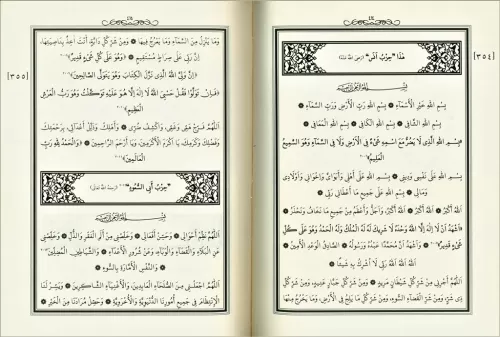 [٣٥٤]
هَذَا "حِزْبُ أَنَسٍ"
بِسْمِ اللهِ خَيْرِ الْأَسْمَاءِ ۞ بِسْمِ اللهِ رَبِّ الْأَرْضِ وَرَبِّ السَّمَاءِ ۞
بِسْمِ اللهِ الشَّافِي ۞ بِسْمِ اللهِ الْكَافِي ۞ بِسْمِ اللهِ الْمُعَافِي ۞
«بِسْمِ اللهِ الَّذِي لَا يَضُرُّ مَعَ اسْمِهِ شَيْءٌ فِي الْأَرْضِ وَلَا فِي السَّمَاءِ وَهُوَ السَّمِيعُ
الْعَلِيمُ»
بِسْمِ اللهِ عَلَى نَفْسِي وَدِينِي ۞ بِسْمِ اللهِ عَلَى أَهْلِي وَأَبَوَايَ وَإِخْوَانِي وَأَوْلَادِي
وَمَالِي ۞ بِسْمِ اللهِ عَلَى جَمِيعِ مَا أَعْطَانِي رَبِّي ۞
اللهُ أَكْبَرُ ۞ اللهُ أَكْبَرُ ۞ اللهُ أَكْبَرُ، وَأَجَلُّ وَأَعْظَمُ مِنْ جَمِيعِ مَا نَخَافُ وَنَحْذَرُ ۞
«أَشْهَدُ أَنْ لَا إِلَهَ إِلَّا اللهُ وَحْدَهُ لَا شَرِيكَ لَهُ لَهُ الْمُلْكُ وَلَهُ الْحَمْدُ وَهُوَ عَلَى كُلِّ
شَيْءٍ قَدِيرٌ» ۞ وَأَشْهَدُ أَنَّ مُحَمَّدًا عَبْدُهُ وَرَسُولُهُ ۞ الصَّادِقُ الْوَعْدِ الْأَمِينُ ۞
اللهُ اللهُ اللهُ رَبِّي لَا أُشْرِكُ بِهِ شَيْئًا ۞
اللَّهُمَّ أَجِرْنِي مِنْ شَرِّ كُلِّ شَيْطَانٍ مَرِيدٍ ۞ وَمِنْ شَرِّ كُلِّ جَبَّارٍ عَنِيدٍ ۞ وَمِنْ شَرِّ كُلِّ
ذِي شَرٍّ، وَمِنْ شَرِّ الْقَضَاءِ السُّوءِ، وَمِنْ شَرِّ كُلِّ مَا يَلِجُ فِي الْأَرْضِ، وَمَا يَخْرُجُ مِنْهَا
[٣٥٥]
وَمَا يَنْزِلُ مِنَ السَّمَاءِ وَمَا يَعْرُجُ فِيهَا ۞ وَمِنْ شَرِّ كُلِّ دَابَّةٍ، أَنْتَ آخِذٌ بِنَاصِيَتِهَا،
إِنَّ رَبِّي عَلَى صِرَاطٍ مُسْتَقِيمٍ ۞ «وَهُوَ عَلَى كُلِّ شَيْءٍ قَدِيرٌ»
«إِنَّ وَلِيِّيَ اللهُ الَّذِي نَزَّلَ الْكِتَابَ وَهُوَ يَتَوَلَّى الصَّالِحِينَ»
«فَإِنْ تَوَلَّوْا فَقُلْ حَسْبِيَ اللهُ لَا إِلَهَ إِلَّا هُوَ عَلَيْهِ تَوَكَّلْتُ وَهُوَ رَبُّ الْعَرْشِ
الْعَظِيمِ»
اللَّهُمَّ فَرِّجْ هَمِّي وَغَمِّي، وَاكْشِفْ ضُرِّي ۞ وَأَهْلِكْ أَعْدَائِي، بِرَحْمَتِكَ
وَفَضْلِكَ وَكَرَمِكَ يَا أَكْرَمَ الْأَكْرَمِينَ، وَيَا أَرْحَمَ الرَّاحِمِينَ ۞ «وَالْحَمْدُ لِلَّهِ رَبِّ
الْعَالَمِينَ»
"حِزْبُ أَبِي السُّعُودِ"
اللَّهُمَّ نَظِّمْ أَحْوَالِي ۞ وَحَسِّنْ أَفْعَالِي ۞ وَخَلِّصْنِي مِنْ أَلَمِ الْفَقْرِ وَالذُّلِّ ۞ وَخَلِّصْنِي
عَنِ الْبَلَاءِ وَالْقَضَاءِ وَالْوَبَاءِ، وَعَنْ شُرُورِ الْأَعْدَاءِ ۞ وَالشَّيَاطِينِ الْمُضِلِّينَ
۞ وَالنَّفْسِ الْأَمَّارَةِ بِالسُّوءِ ۞
اللَّهُمَّ اجْعَلْنِي مِنَ الصُّلَحَاءِ الْعَابِدِينَ، وَالْأَغْنِيَاءِ الشَّاكِرِينَ ۞ وَيَسِّرْ لَنَا
الِانْتِظَامَ فِي جَمِيعِ أُمُورِنَا الدُّنْيَوِيَّةِ وَالْأُخْرَوِيَّةِ ۞ وَحَصِّلْ مُرَادَنَا مِنَ الْخَيْرِ ۞